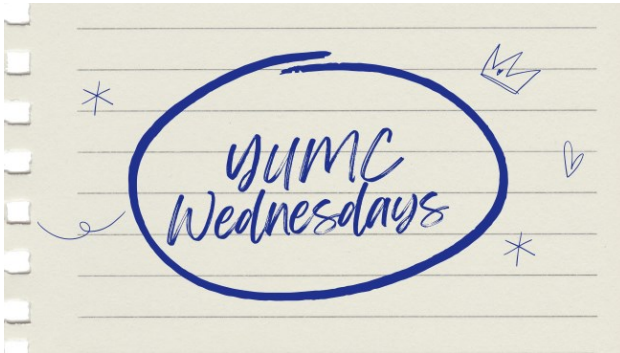 YUMC
Wednesdays